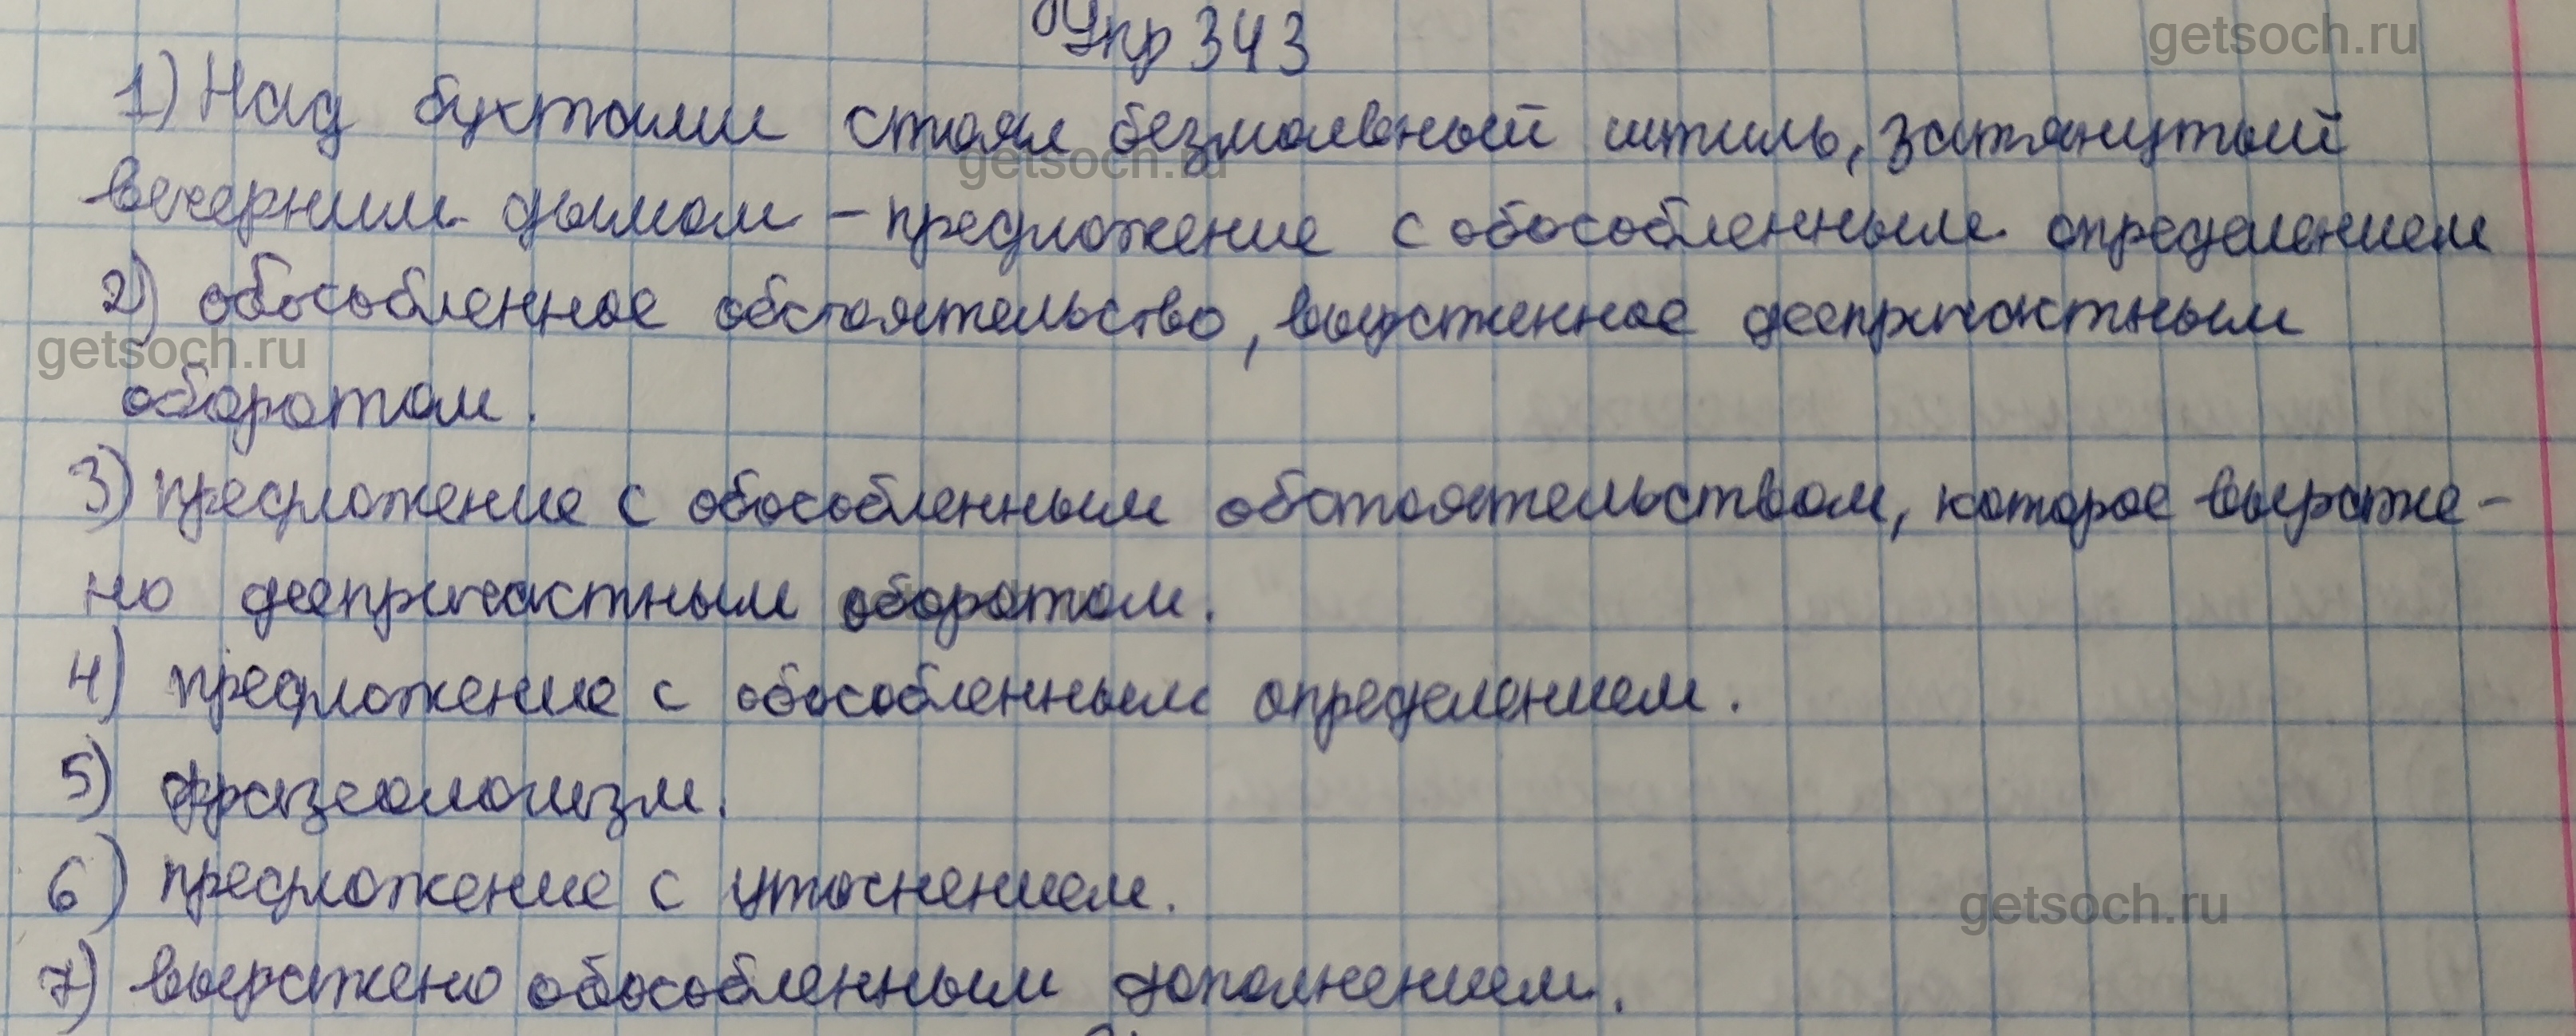 Упр 343
getsoch.ru
1) Над бухтами стоял безмолвный штиль, затянутый
getsoch.ru
вечерним дымом – предложение с обособленным определением
2) обособленное обстоятельство, выраженное деепричастным
getsoch.ru
оборотом.
3) предложение с обособленным обстоятельством, которое выраже-
но деепричастным оборотом.
4) предложение с обособленным определением.
5) фразеологизм.
6) предложение с уточнением.
getsoch.ru
7) выражено обособленным дополнением.